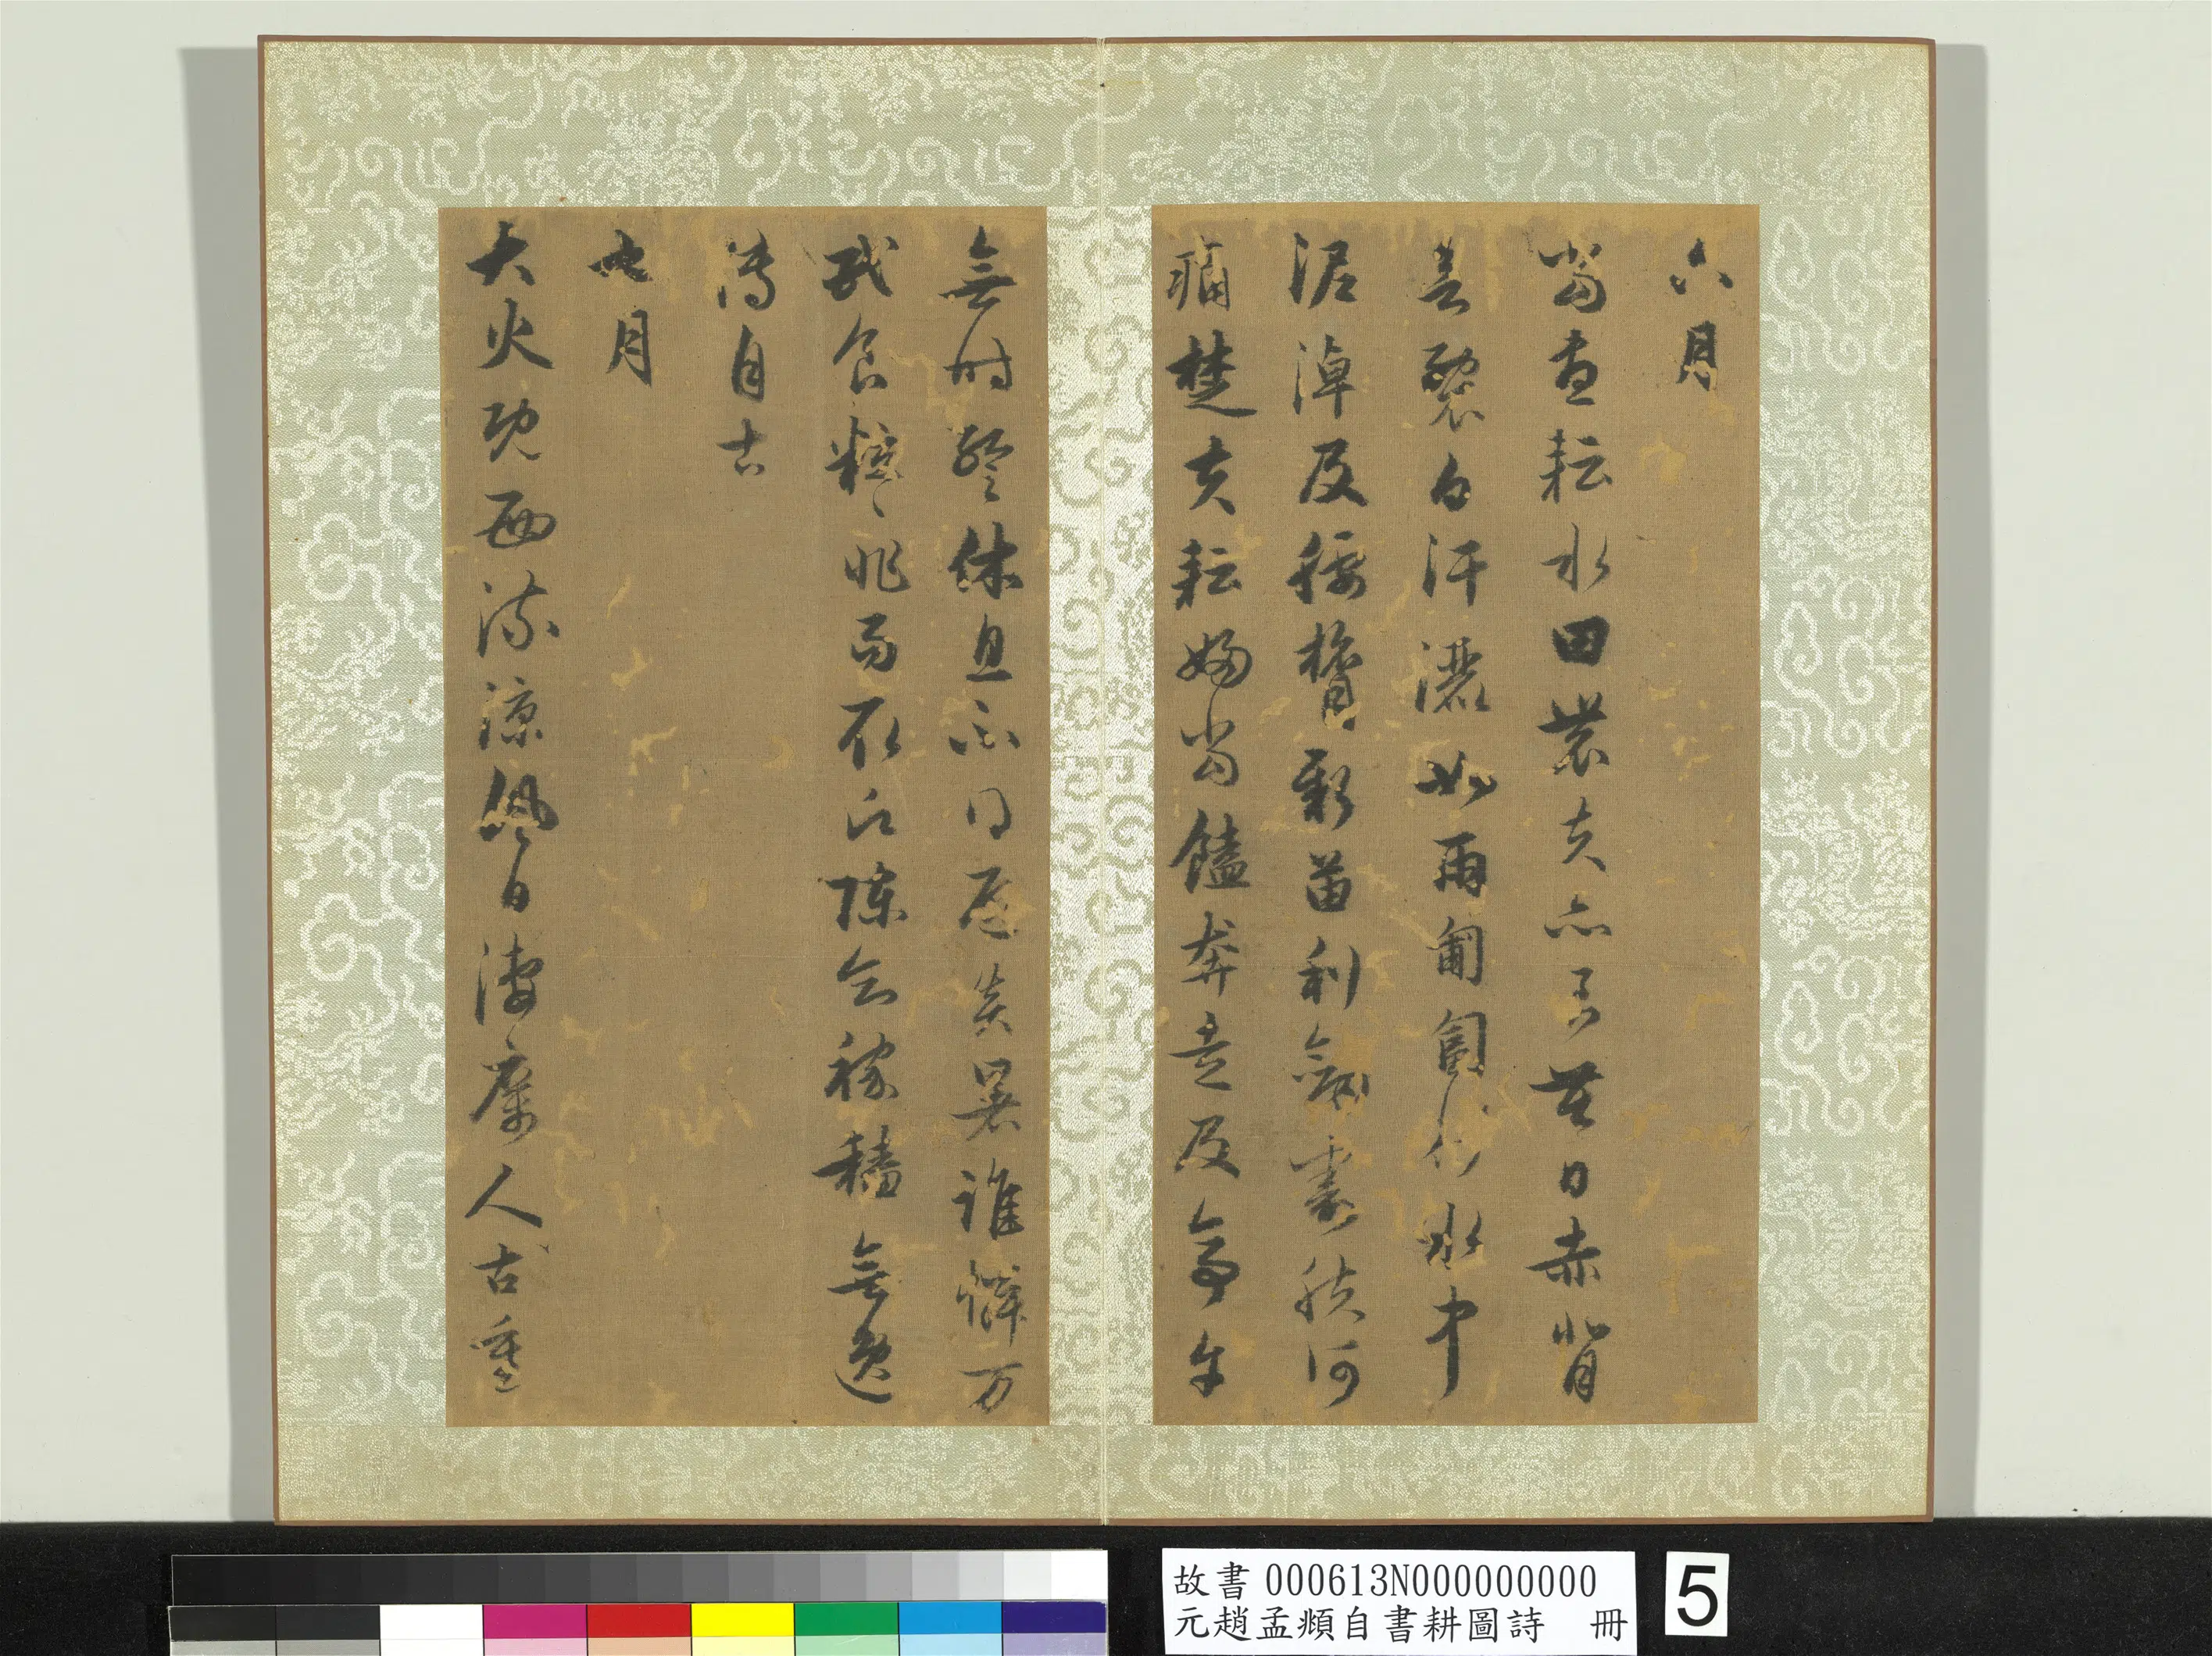 六月
當晝耘水田農夫亦良苦日赤背
若裂白汗灑如雨匍匐行水中
泥淖及腰膂新苗利劍膚何
痛楚夫耘婦當饁奔走及亭午
無时暫休息不得炎暑誰憐万
民食粒〻非易取願陳知稼穡無逸
傳自古
七月
大火既西流涼風日淒厲人古重
故書 000613N000000000
元趙孟頫自書耕圖詩 冊
5